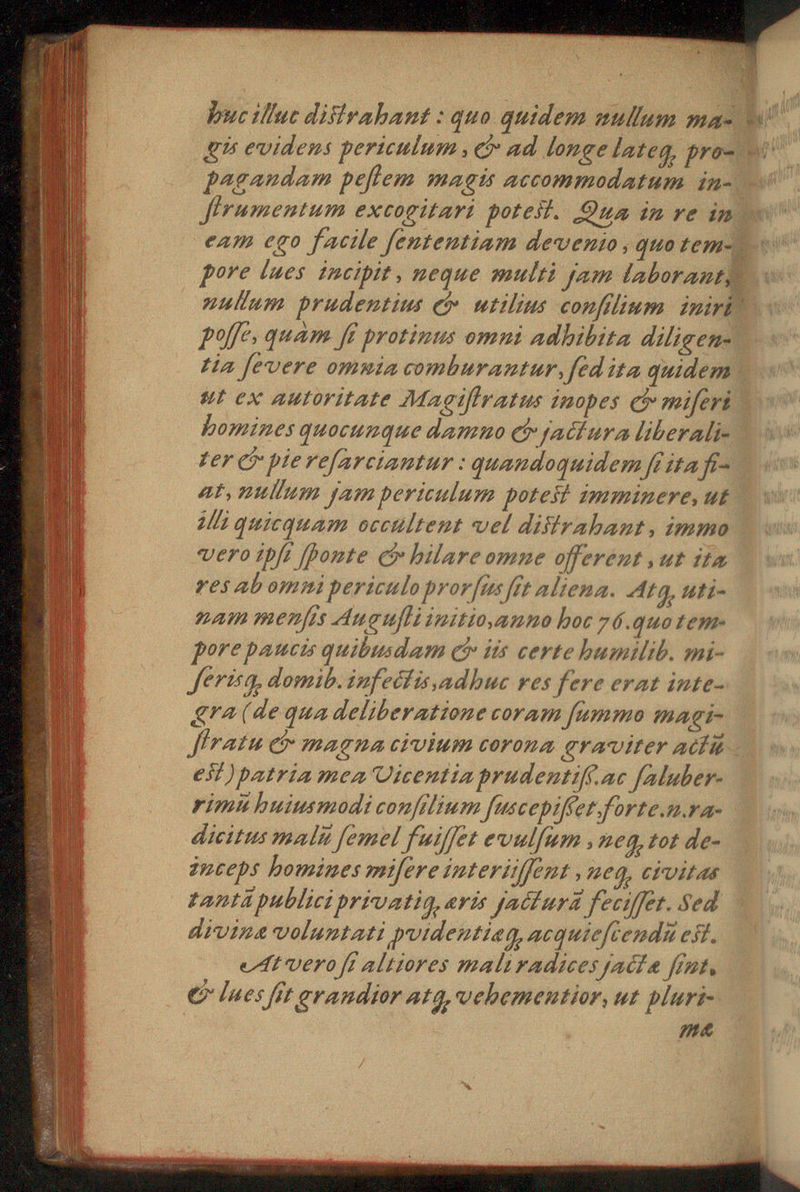 huc illuc distrahant : quo quidem nullum ma-
gis evidens periculum, & ad longe lateq́; pro-
pagandam pestem magis accommodatum in-
strumentum excogitari potest. Qua in re in
eam ego facile sententiam devenio, quo tem-
pore lues incipit, neque multi jam laborant,
nullum prudentius & utilius consilium iniri
posse, quàm si protinus omni adhibita diligen-
tia severe omnia comburantur, sed ita quidem
ut ex autoritate Magistratus inopes & miseri
homines quocunque damno & jactura liberali-
ter & pie resarciantur : quandoquidem si ita fi-
at, nullum jam periculum potest imminere, ut
illi quicquam occultent vel distrahant, immo
vero ipsi sponte & hilare omne offerent, ut ita
res ab omni periculo prorsus sit aliena. Atq́; uti-
nam mensis Augusti initio, anno hoc 76. quo tem-
pore paucis quibusdam & iis certe humilib. mi-
serisq́; domib. infectis, adhuc res fere erat inte-
gra (de qua deliberatione coram summo magi-
stratu & magna civium corona graviter actū
est) patria mea Vicentia prudentiss. ac saluber-
rimū huiusmodi consilium suscepisset, forte.n.ra-
dicitus malū semel fuisset evulsum, neq́; tot de-
inceps homines misere interiissent, neq́; civitas
tantā publici privatiq́; æris jacturā fecisset. Sed
divinæ voluntati pvidentiæq́; acquiescendū est.
At vero si altiores mali radices jactæ sint,
& lues sit grandior atq́; vehementior, ut pluri-
mæ